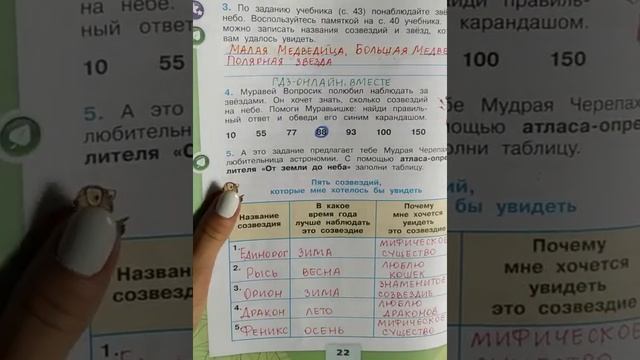 3. По заданию учебника (с. 43) понаблюдайте
небо. Воспользуйтесь памяткой на с. 40 учебника.
можно записать названия созвездий и звёзд,
вам удалось увидеть.
МАЛАЯ МЕДВЕДИЦА, БОЛЬШАЯ
ПОЛЯРНАЯ ЗВЕЗДА
ГДЗ-ОНЛАЙН, ВМЕСТЕ
4. Муравей Вопросик полюбил наблюдать за
звёздами. Он хочет знать, сколько созвездий
на небе. Помоги Муравьишке: найди правиль-
ный ответ и обведи его синим карандашом.
10 55 77 88 93 100 150
5. А это задание предлагает тебе Мудрая
любительница астрономии. С помощью атласа-опре-
лителя «От земли до неба» заполни таблицу.
Пять созвездий,
которые мне хотелось бы увидеть
Название созвездия
В какое время года лучше наблюдать это созвездие
Почему мне хочется увидеть это созвездие
1. ЕДИНОРОГ ЗИМА МИФИЧЕСКОЕ СУЩЕСТВО
2. РЫСЬ ВЕСНА ЛЮБЛЮ КОШЕК
3. ОРИОН ЗИМА ЗНАМЕНИТОЕ СОЗВЕЗДИЕ
4. ДРАКОН ЛЕТО ЛЮБЛЮ ДРАКОНОВ
5. ФЕНИКС ОСЕНЬ МИФИЧЕСКОЕ СУЩЕСТВО
22
на небе.
ный ответ
10 55
5. А это
любительни
лителя «От
Назван
созвезд
карандашом.
100 150
тебе Мудрая Черепаха
помощью атласа-опре-
лни таблицу.
ий,
бы увидеть
Почему
мне хочется
увидеть
это созвездие
МИФИЧЕСКОЕ